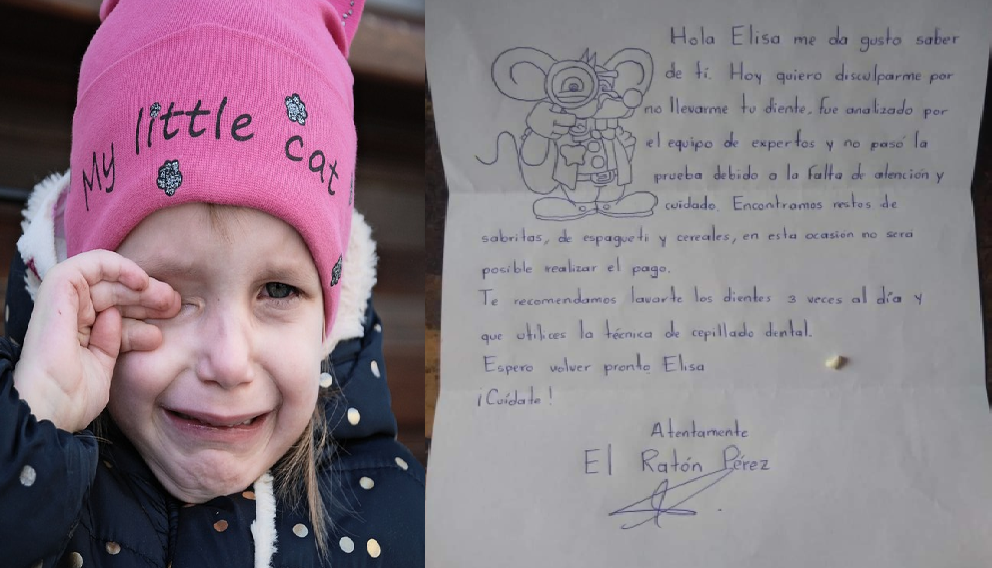 My little cat
Hola Elisa me da gusto saber
de ti. Hoy quiero disculparme por
no llevarme tu diente. Fue analizado por
el equipo de expertos y no pasó la
prueba debido a la falta de atención y
cuidado. Encontramos restos de
sabritas, de espagueti y cereales, en esta ocasión no será
posible realizar el pago.
Te recomendamos lavarte los dientes 3 veces al día y
que utilices la técnica de cepillado dental.
Espero volver pronto Elisa
¡Cuídate!
Atentamente
El Ratón Pérez